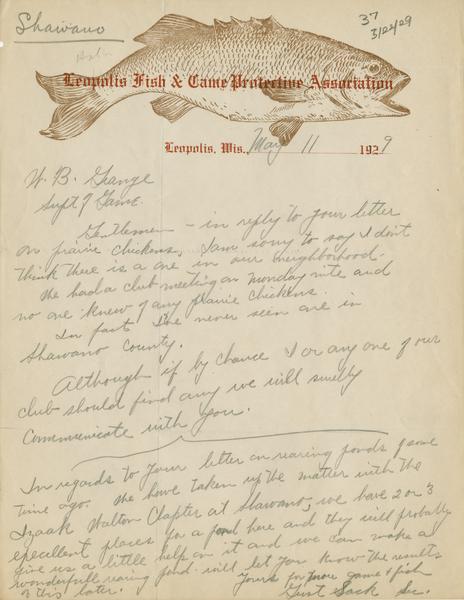 Shawano
37
3/22/29
Leopolis Fish & Game Protective Association
Leopolis, Wis., May 11 1929
W. B. Grange
Supt of Game.
Gentlemen - in reply to your letter
on prairie chickens, I am sorry to say I don't
think there is a one in our neighborhood.
We had a club meeting on Monday nite and
no one knew of any prairie chickens.
In fact I've never seen one in
Shawano County.
Although if by chance I or any one of our
club should find any we will surely
communicate with you.
In regards to your letter on rearing ponds of some
time ago. We have taken up the matter with the
Izaak Walton Chapter at Shawano, we have 2 or 3
excellent places for a pond here and they will probably
give us a little help on it and we can make a
wonderfull rearing pond. will let you know the results
of this later. Yours for more game & fish
Gust Sack Sec.